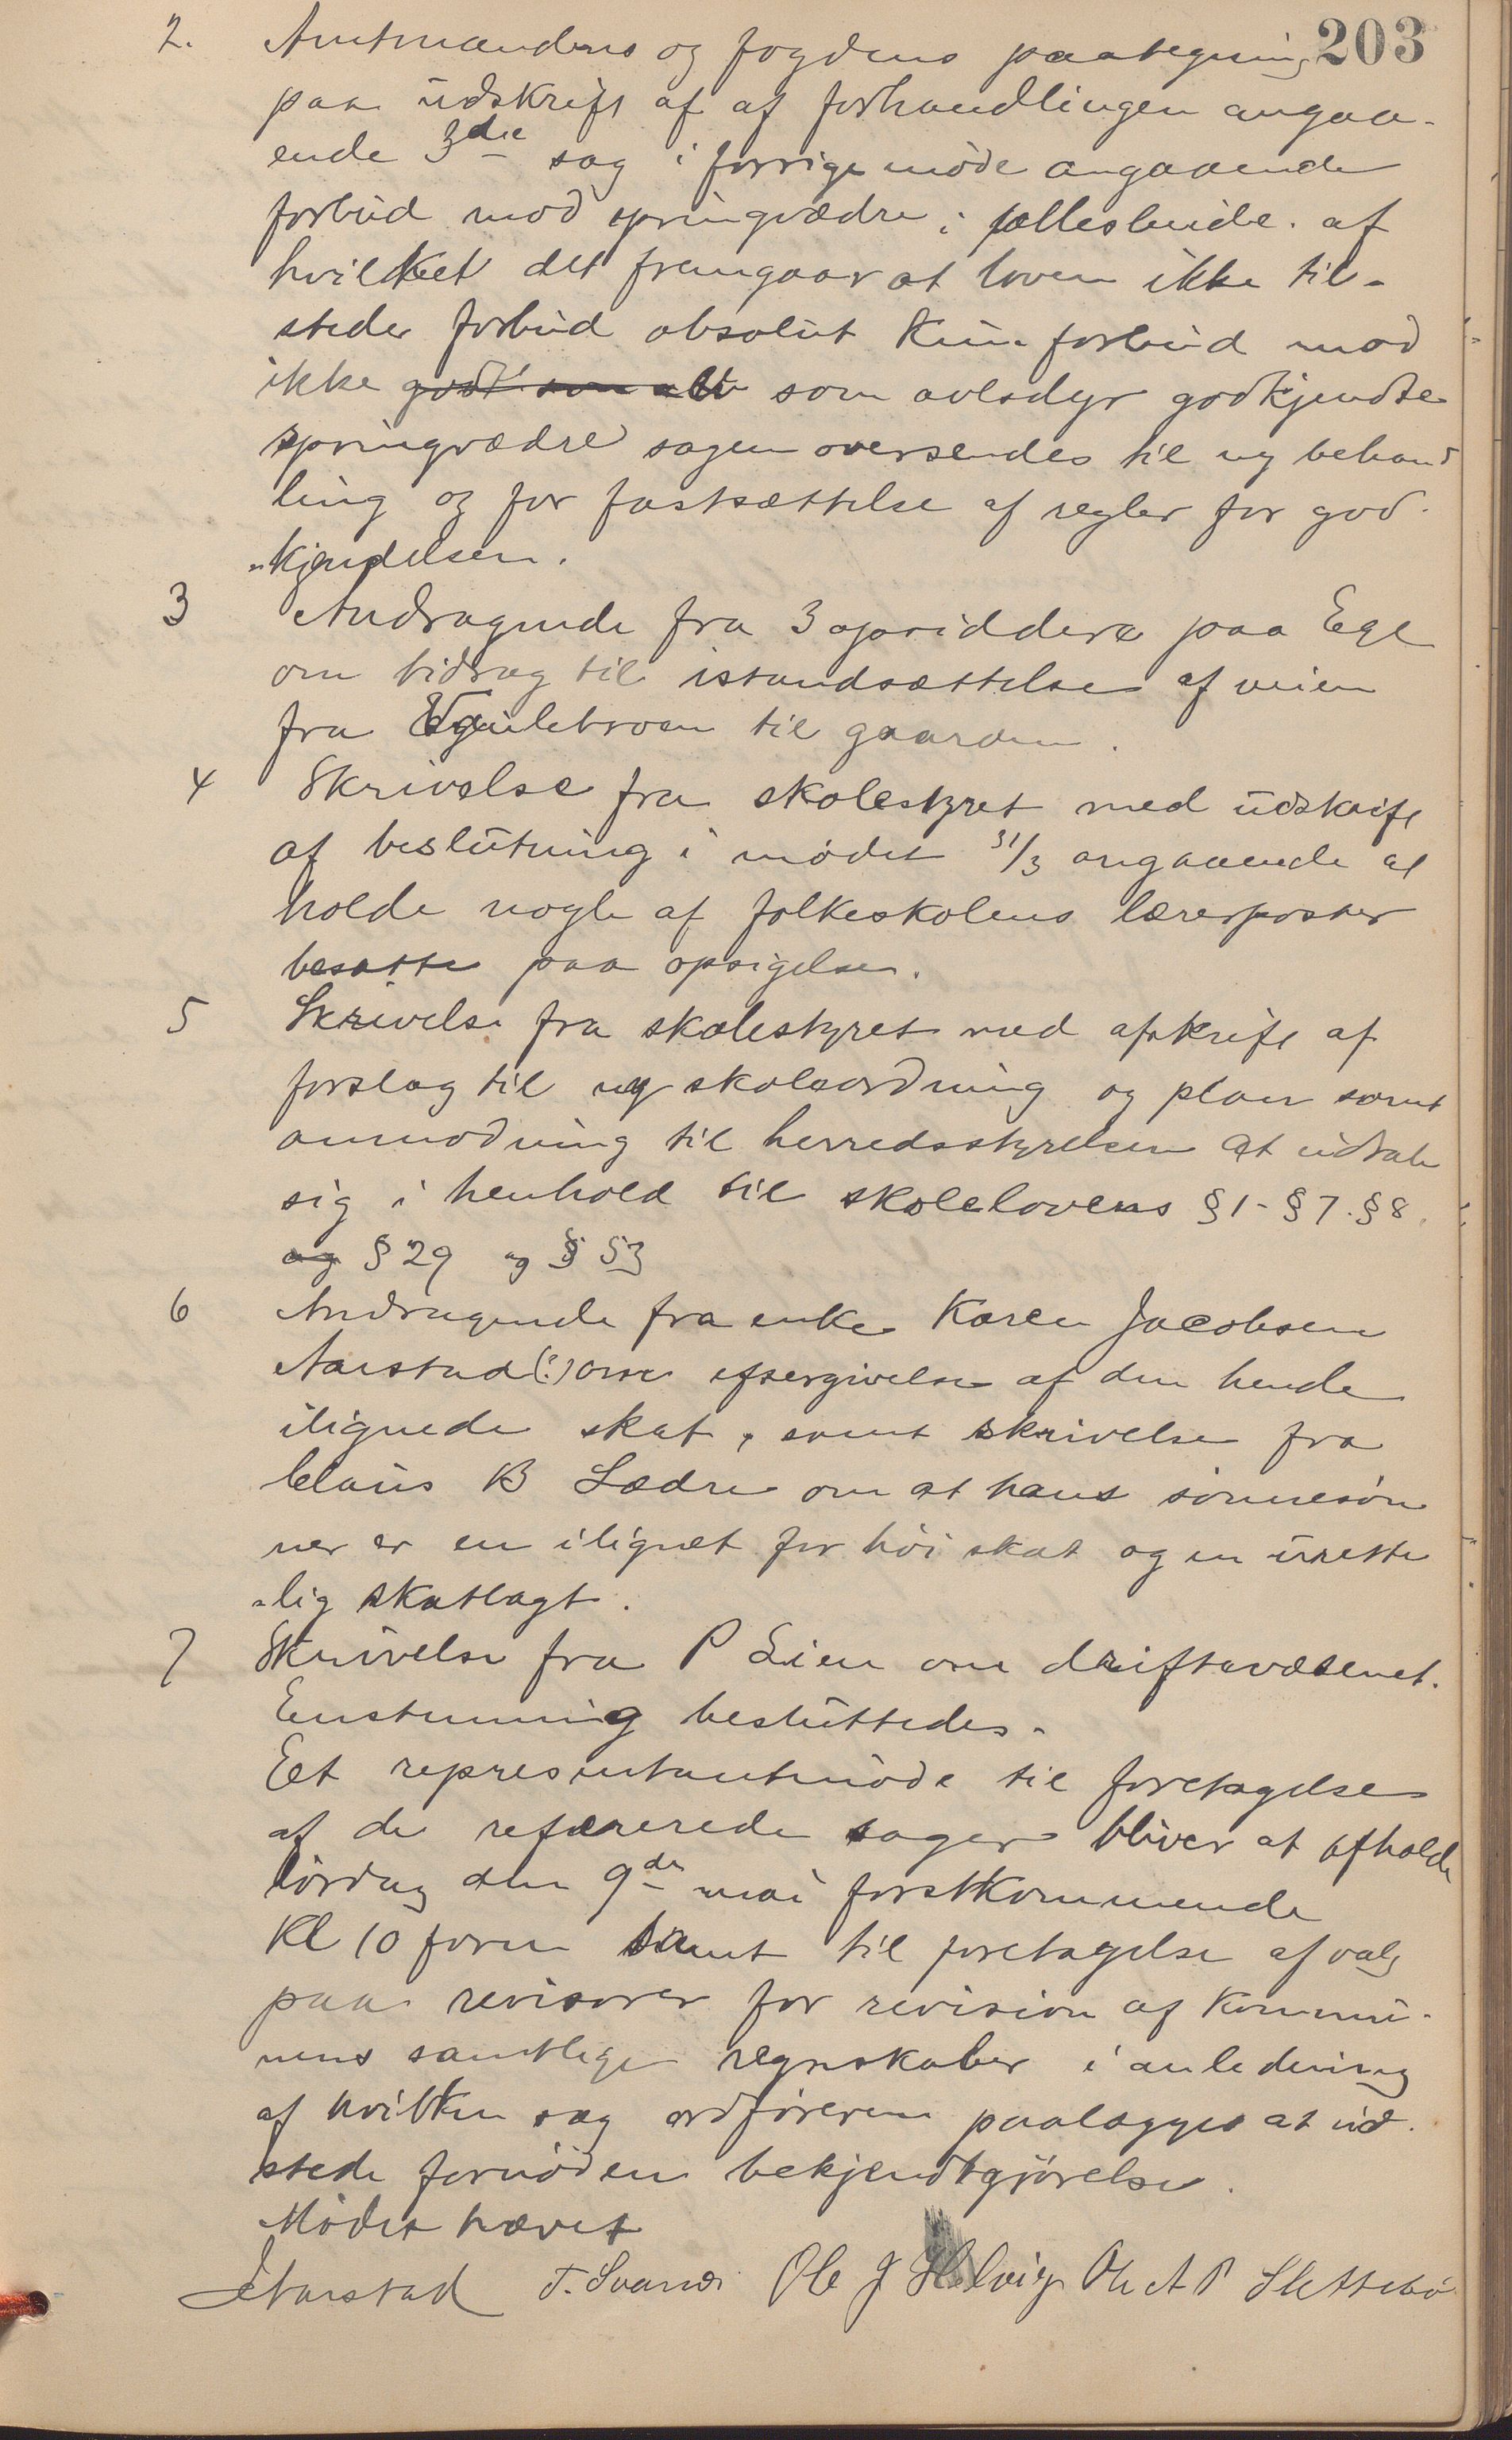 203
2. Amtmandens og fogdens paategning
paa udskrift af af forhandlingen angaa-
ende 3die sag i forrige møde angaaende
forbud mod springvædre i fællesbeide. af
hvilket det fremgaar at loven ikke til-
steder forbud absolut kun forbud mod
ikke godt som alv som avlsdyr godkjendte
springvædre sagen oversendes til ny behand
ling og for fastsættelse af regler for god-
"kjendelsen.
3 Andragende fra 3 opsiddere paa Ege
om bidrag til istandsættelse af veien
fra til gaarden.
4 Skrivelse fra skolestyret med udskrift
af beslutning i mødet 31/3 angaaende at
holde nogle af folkeskolens lærerposter
besatte paa opsigelse.
5 Skrivelse fra skolestyret med afskrift af
forslag til ny skoleordning og plan samt
anmodning til herredsstyrelsen at udtale
sig i henhold til skolelovens § 1 - § 7. § 8.
og § 29 og § 53
6 Andragende fra enke Karen Jacobsen
Aarstad (?) om eftergivelse af den hende
ilignede skat, samt skrivelse fra
Claus B Lædre om at hans sønnesøn
ner er en ilignet for høi skat og en urette
"lig skatlagt.
7 Skrivelse fra P Lien om driftevæsenet.
Enstemmig besluttedes.
Eet representantmøde til foretagelse
af de refererede sager bliver at afholde
lørdag den 9de mai førstkommende
Kl 10 form samt til foretagelse af valg
paa revisorer for revision af kommu-
nens samtlige regnskaber i anledning
af hvilken sag ordføreren paalægges at ud-
stede fornøden bekjendtgjørelse.
Mødet hævet
Aarstad T. Svanes Ole J Helvig Ole A P Slettebø